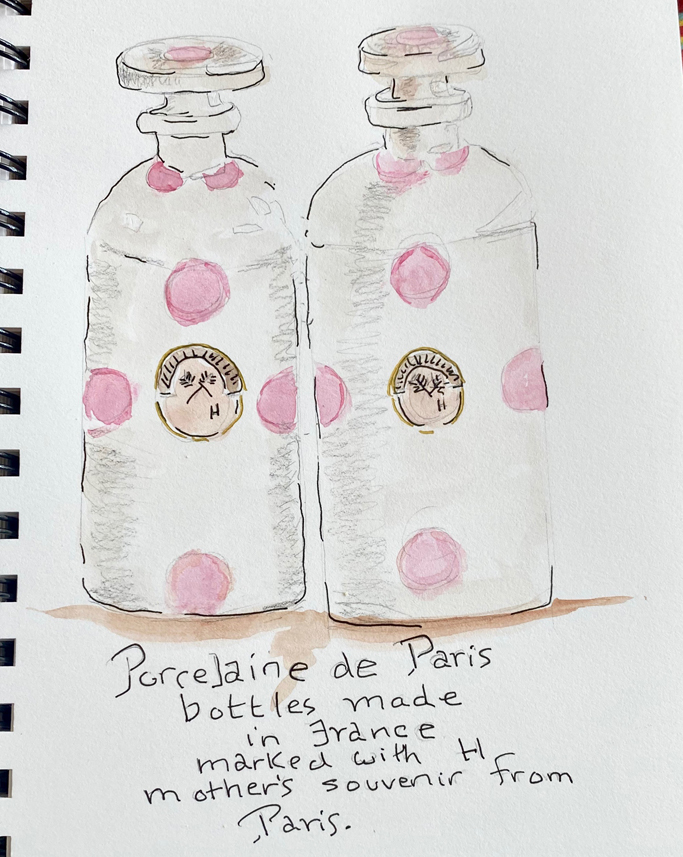 H
H
Porcelaine de Paris
bottles made
in France
marked with H
mother's souvenir from
Paris.